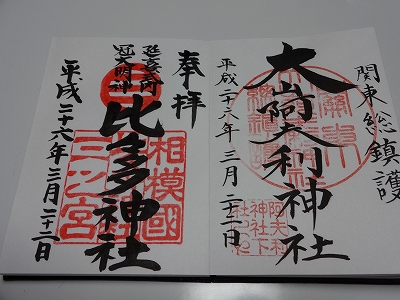 関東総鎮護
大山阿夫利神社
平成二十六年三月二十二日
奉拝
延喜式内
冠大明神
比々多神社
相模國
三之宮
平成二十六年三月二十二日